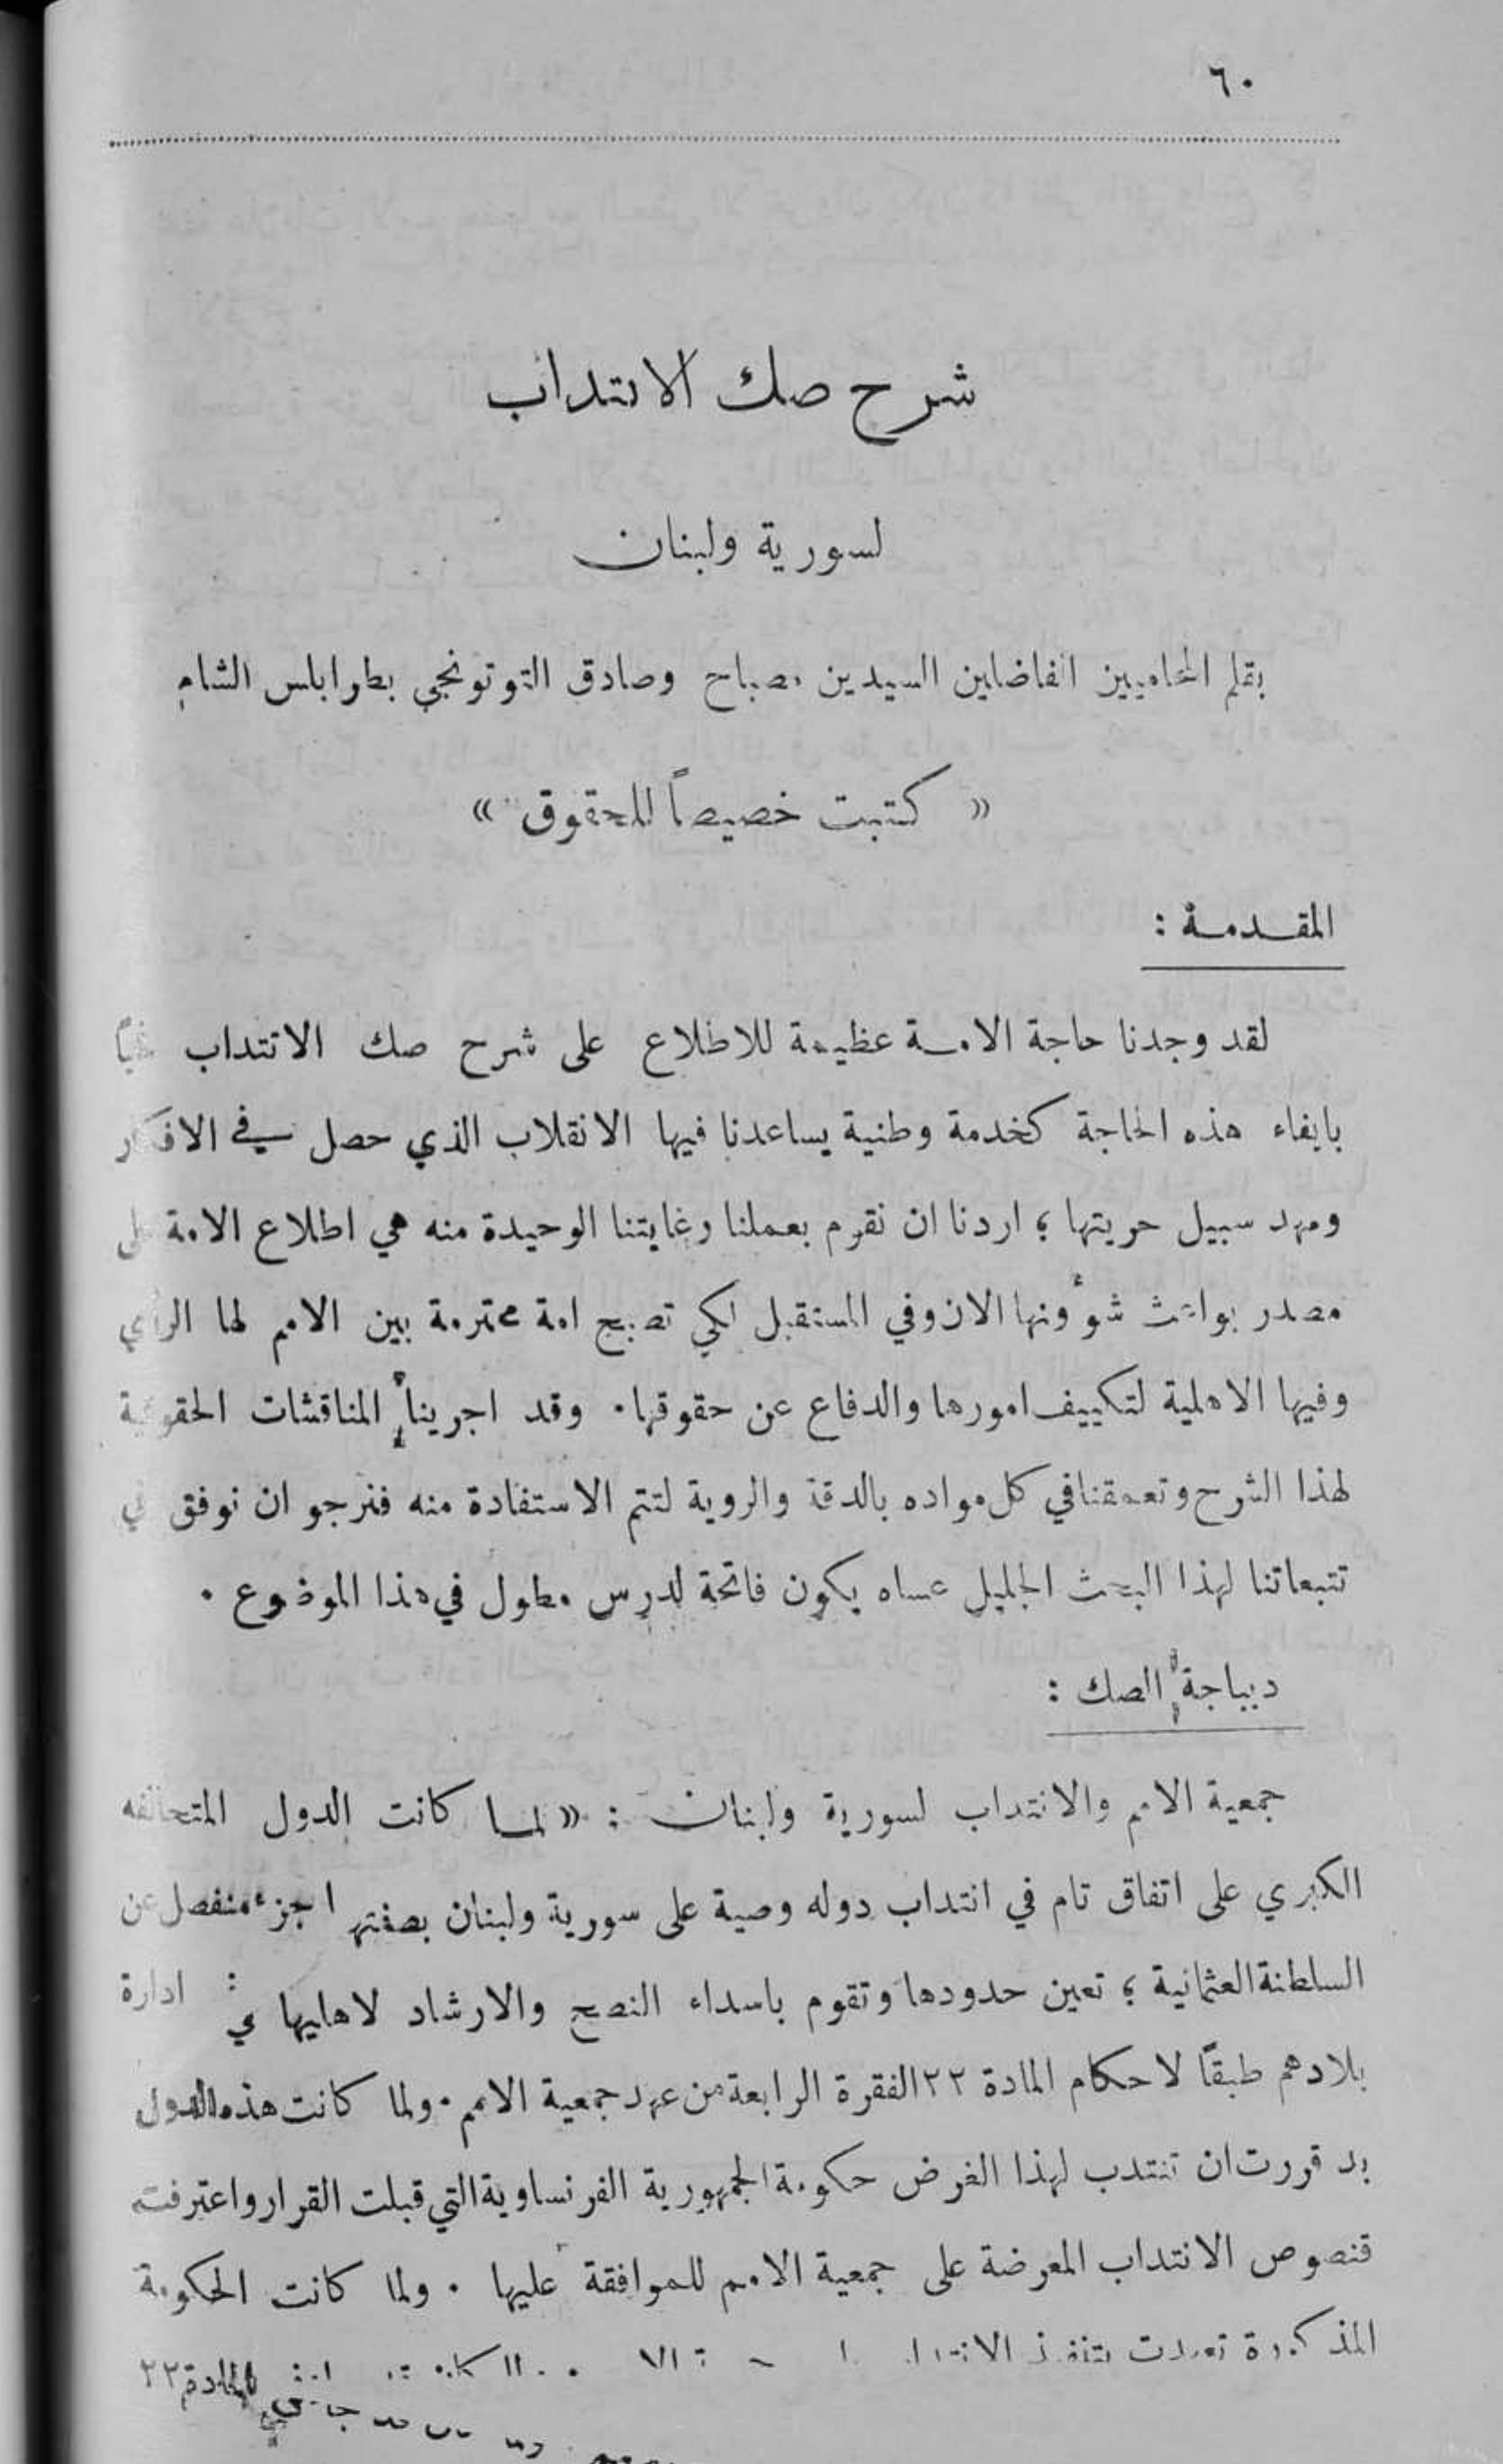 ٦٠
شرح صك الانتداب
لسورية ولبنان
بقلم المحاميين الفاضلين السيدين مصباح وصادق التوتونجي بطرابلس الشام
« كتبت خصيصاً للحقوق »
المقدمة :
لقد وجدنا حاجة الامة عظيمة للاطلاع على شرح صك الانتداب
بايفاء هذه الحاجة كخدمة وطنية يساعدنا فيها الانقلاب الذي حصل في الافكار
ومهد سبيل حريتها ؛ اردنا ان نقوم بعملنا وغايتنا الوحيدة منه هي اطلاع الامة على
مصدر بواعث شؤونها الان وفي المستقبل لكي تصبح امة محترمة بين الامم لها الراي
وفيها الاهلية لتكييف امورها والدفاع عن حقوقها . وقد اجرينا المناقشات الحقوقية
لهذا الشرح وتعمقنا في كل مواده بالدقة والروية لتتم الاستفادة منه فنرجو ان نوفق في
تتبعاتنا لهذا البحث الجليل عساه يكون فاتحة لدرس مطول في هذا الموضوع .
ديباجة الصك :
جمعية الامم والانتداب لسورية ولبنان : « لما كانت الدول المتحالفه
الكبرى على اتفاق تام في انتداب دوله وصية على سورية ولبنان بصفتها جزء منفصل عن
السلطنة العثمانية ؛ تعين حدودها وتقوم باسداء النصح والارشاد لاهاليها في ادارة
بلادهم طبقاً لاحكام المادة ٢٢ الفقرة الرابعة من عهد جمعية الامم . ولما كانت هذه الدول
قررت ان تنتدب لهذا الغرض حكومة الجمهورية الفرنساوية التي قبلت القرار واعترفت
الانتداب المعرضة على جمعية الامم للموافقة عليها . ولما كانت الحكومة
المذكورة تعهدت بتنفيذ الانتداب المادة ٢٢